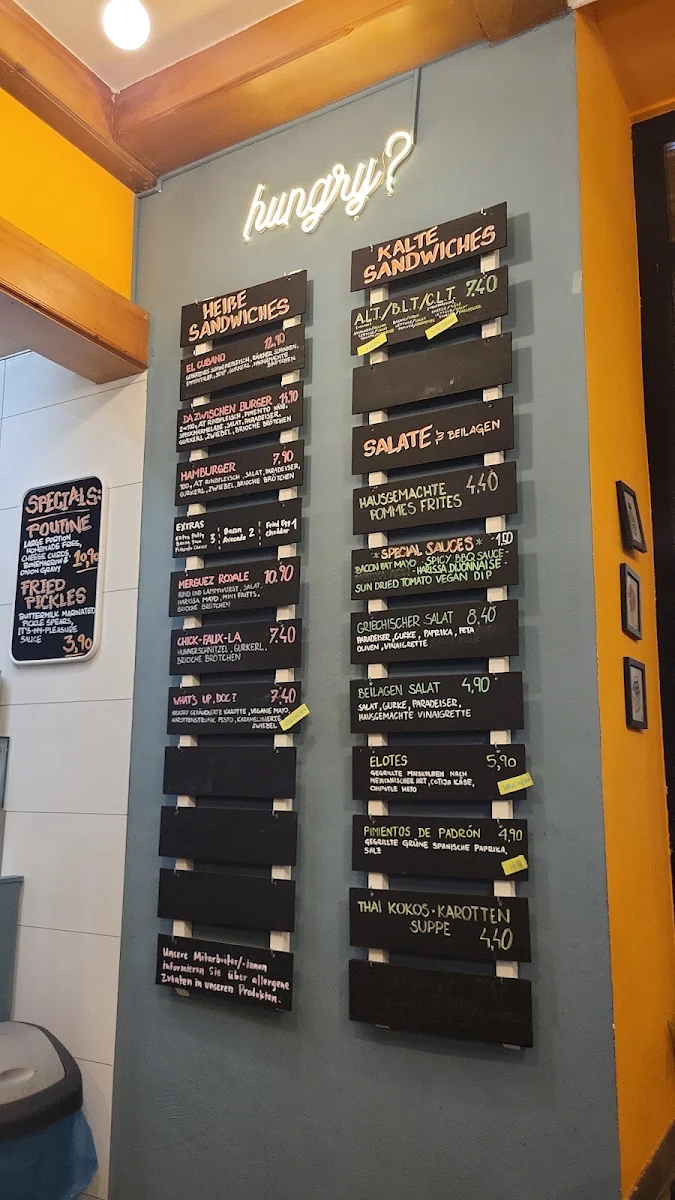 hungry?
HEIßE
SANDWICHES
EL CUBANO 12,90
EMMENTALER, SENF, GURKERL, HAUSGEMACHTE
BRÖTCHEN
DAZWISCHEN BURGER 14,90
2×100g AT RINDFLEISCH, PIMENTO KÄSE,
SPECKMARMELADE, SALAT, PARADEISER,
GURKERL, ZWIEBEL, BRIOCHE BRÖTCHEN
HAMBURGER 7,90
100g AT RINDFLEISCH, SALAT, PARADEISER,
GURKERL, ZWIEBEL, BRIOCHE BRÖTCHEN
EXTRAS
Extra Patty
Bacon Jam
Pimento Cheese
3
Bacon
Avocado
2
Fried Egg
Cheddar
1
MERGUEZ ROYALE 10,90
RIND UND LAMMWURST, SALAT,
HARISSA MAYO, MINI FRITTS,
BRIOCHE BRÖTCHEN
CHICK-FAUX-LA 7,40
HÜHNERSCHNITZEL, GURKERL,
BRIOCHE BRÖTCHEN
WHAT'S UP, DOC? 7,40
HICKORY GERÄUCHERTE KAROTTE, VEGANE MAYO,
KAROTTENSTRUNK PESTO, KARAMELISIERTE
ZWIEBEL
Unsere Mitarbeiter/-innen
informieren Sie über allergene
Zutaten in unseren Produkten.
KALTE
SANDWICHES
A.L.T./B.L.T/C.L.T 7.40
SALATE & BEILAGEN
HAUSGEMACHTE 4,40
POMMES FRITES
*SPECIAL SAUCES* -1.50
BACON FAT MAYO · SPICY BBQ SAUCE·
HARISSA DIJONNAISE·
SUN DRIED TOMATO VEGAN DIP
GRIECHISCHER SALAT 8,40
PARADEISER, GURKE, PAPRIKA, FETA
OLIVEN, VINAIGRETTE
BEILAGEN SALAT 4,90
SALAT, GURKE, PARADEISER,
HAUSGEMACHTE VINAIGRETTE
ELOTES 5,90
GEGRILLTE MAISKOLBEN NACH
MEXICANISCHER ART, COTIJA KÄSE,
CHIPOTLE MAYO
PIMIENTOS DE PADRÓN 4,90
GEGRILLTE GRÜNE SPANISCHE PAPRIKA,
SALZ
THAI KOKOS-KAROTTEN
SUPPE
4,40
SPECIALS:
POUTINE
LARGE PORTION
HOMEMADE FRIES,
CHEESE CURDS,
BONEMARROW &
ONION GRAVY
10,90
FRIED
PICKLES
BUTTERMILK MARINATED
PICKLE SPEARS,
IT'S-MY-PLEASURE
SAUCE 3,90